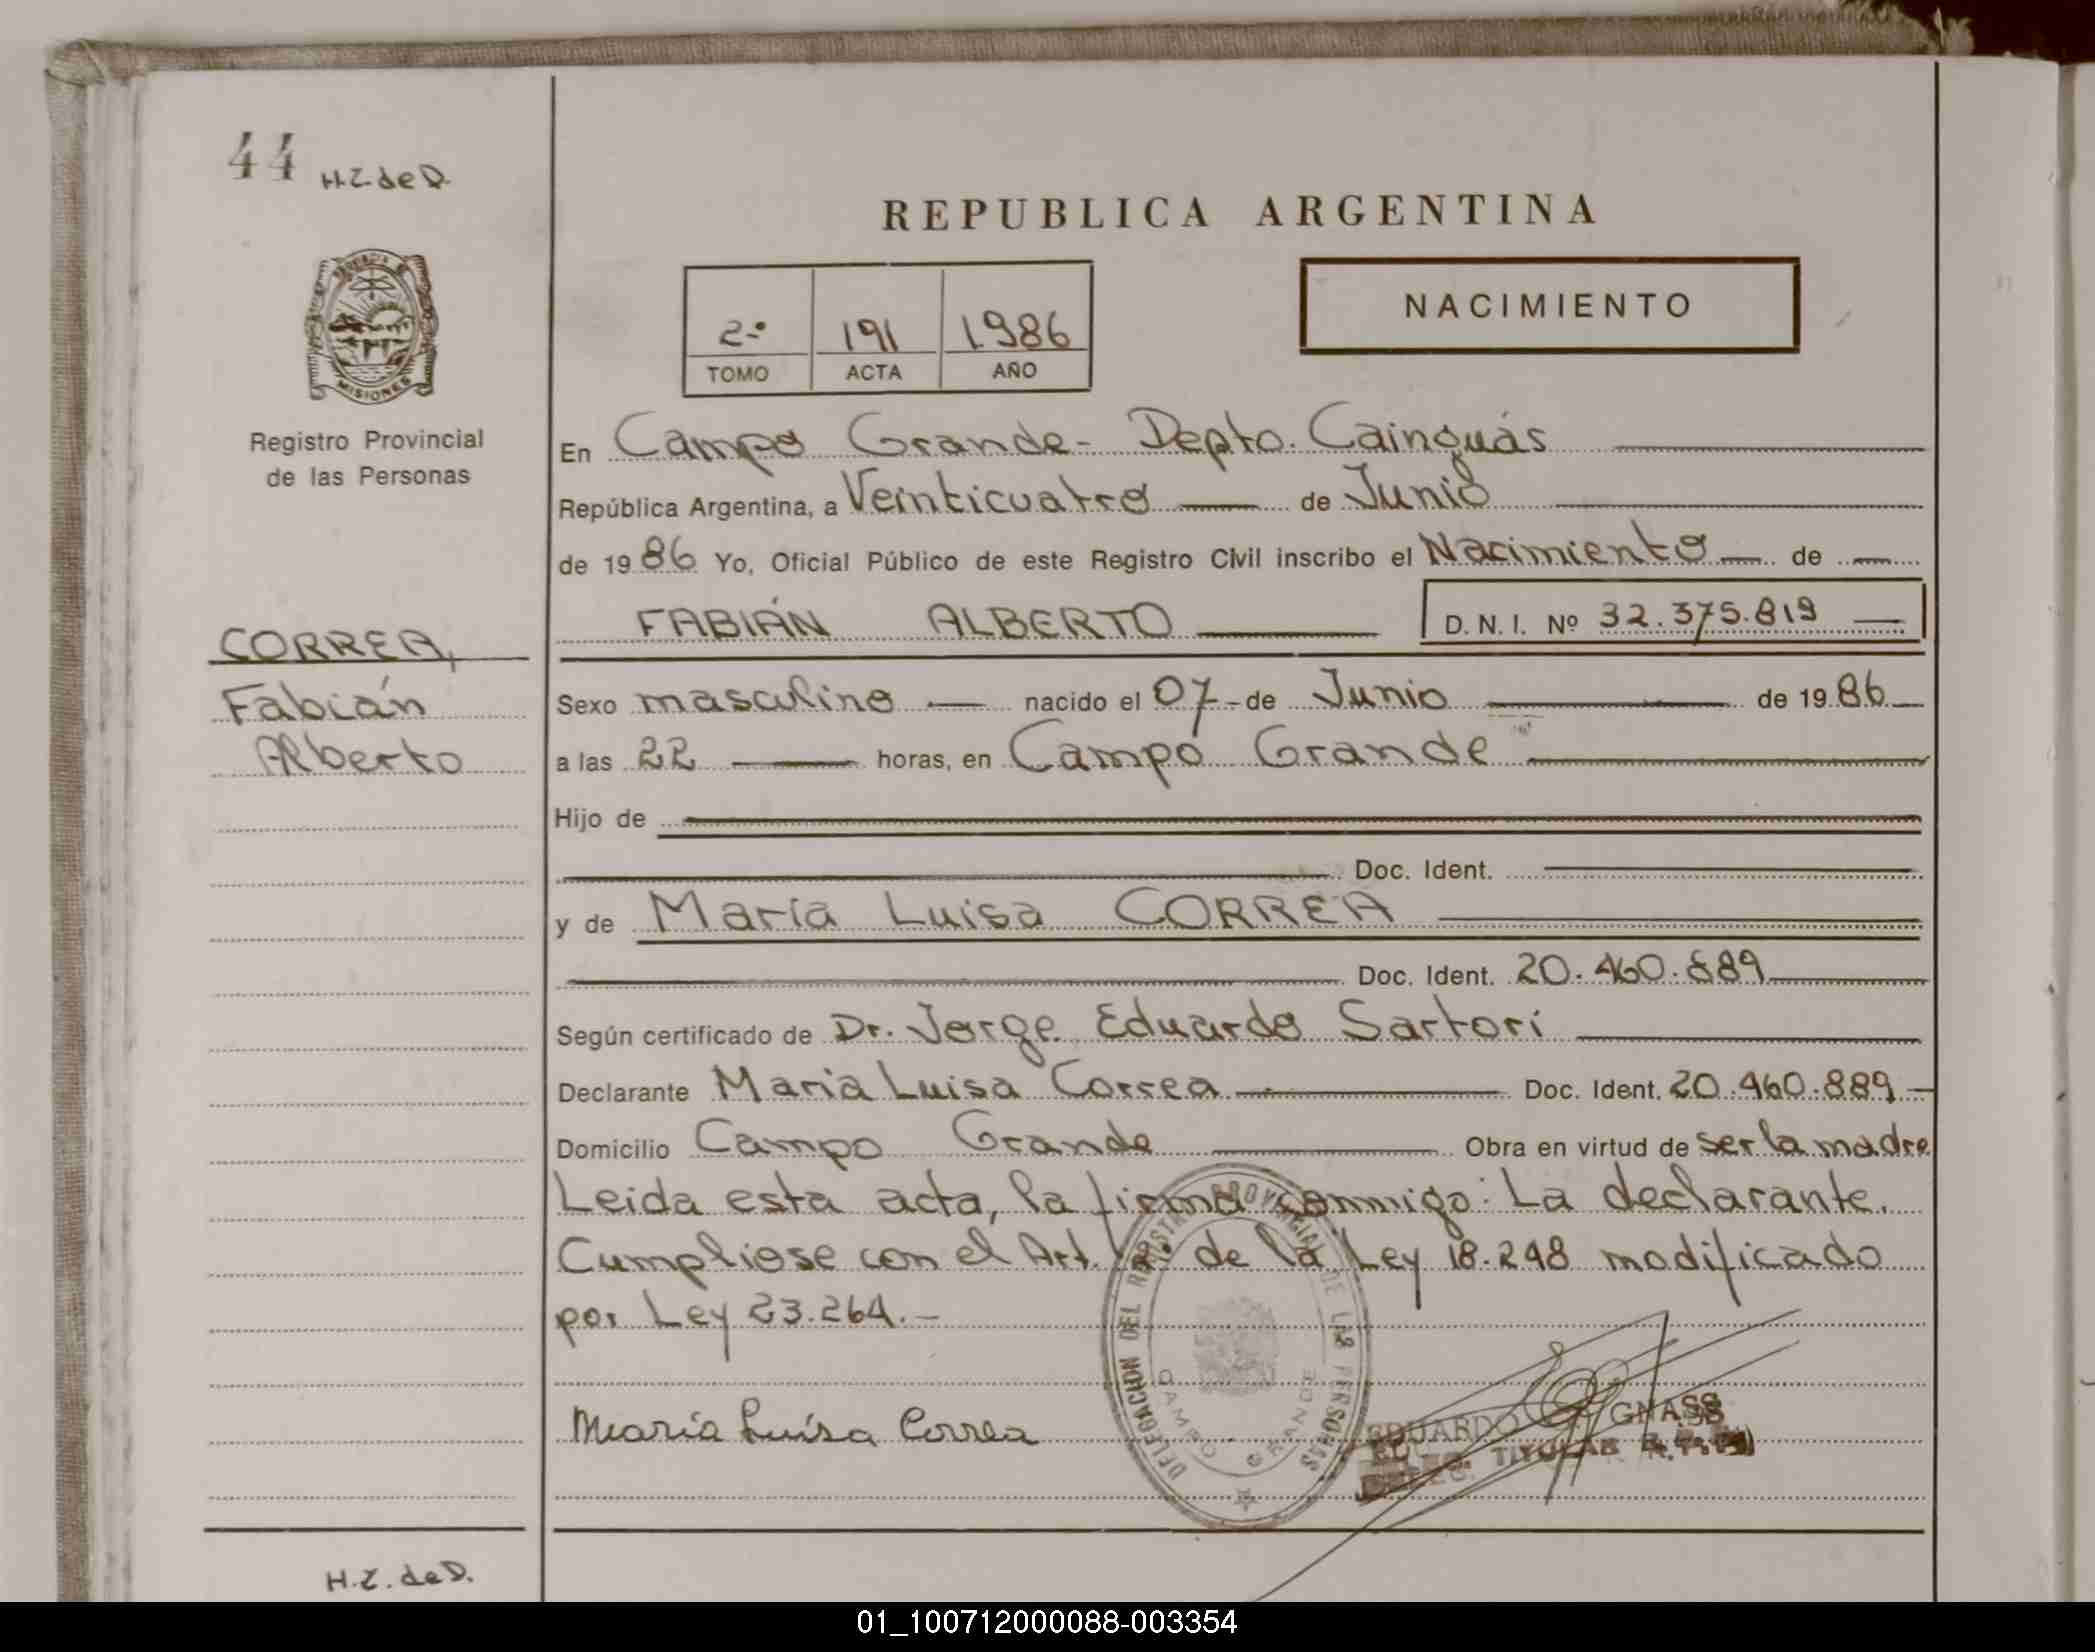 44 H.Z. de D.
REPUBLICA ARGENTINA
NACIMIENTO
2º 191 1986
TOMO ACTA AÑO
MISIONES
Registro Provincial
de las Personas
CORREA,
Fabián
Alberto
En Campo Grande - Depto. Cainguás
República Argentina, a Veinticuatro de Junio
de 1986 Yo, Oficial Público de este Registro Civil inscribo el Nacimiento de
FABIÁN ALBERTO D.N.I. Nº 32.375.819
Sexo masculino nacido el 07 - de Junio de 1986
a las 22 horas, en Campo Grande
Hijo de
Doc. Ident.
y de María Luisa CORREA
Doc. Ident. 20.460.889
Según certificado de Dr. Jorge Eduardo Sartori
Declarante María Luisa Correa Doc. Ident. 20.460.889
Domicilio Campo Grande Obra en virtud de ser la madre
Leida esta acta, la firma conmigo: La declarante.
Cumpliose con el Art. de la Ley 18.248 modificado
por Ley 23.264.-
María Luisa Correa
DELEGACION DEL REGISTRO PROVINCIAL DE LAS PERSONAS
CAMPO GRANDE
EDUARDO GNASS
TITULAR
H.Z. de D.
01_100712000088-003354